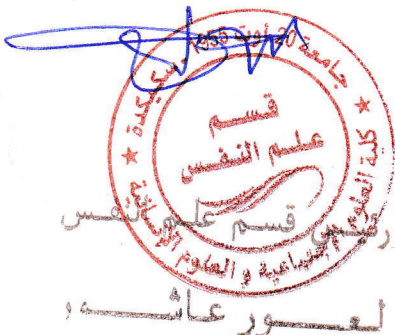 جامعة 20 أوت 1955 سكيكدة
كلية العلوم الاجتماعية و العلوم الإنسانية
قسم
علم النفس
رئيس قسم علم النفس
لعور عاشور